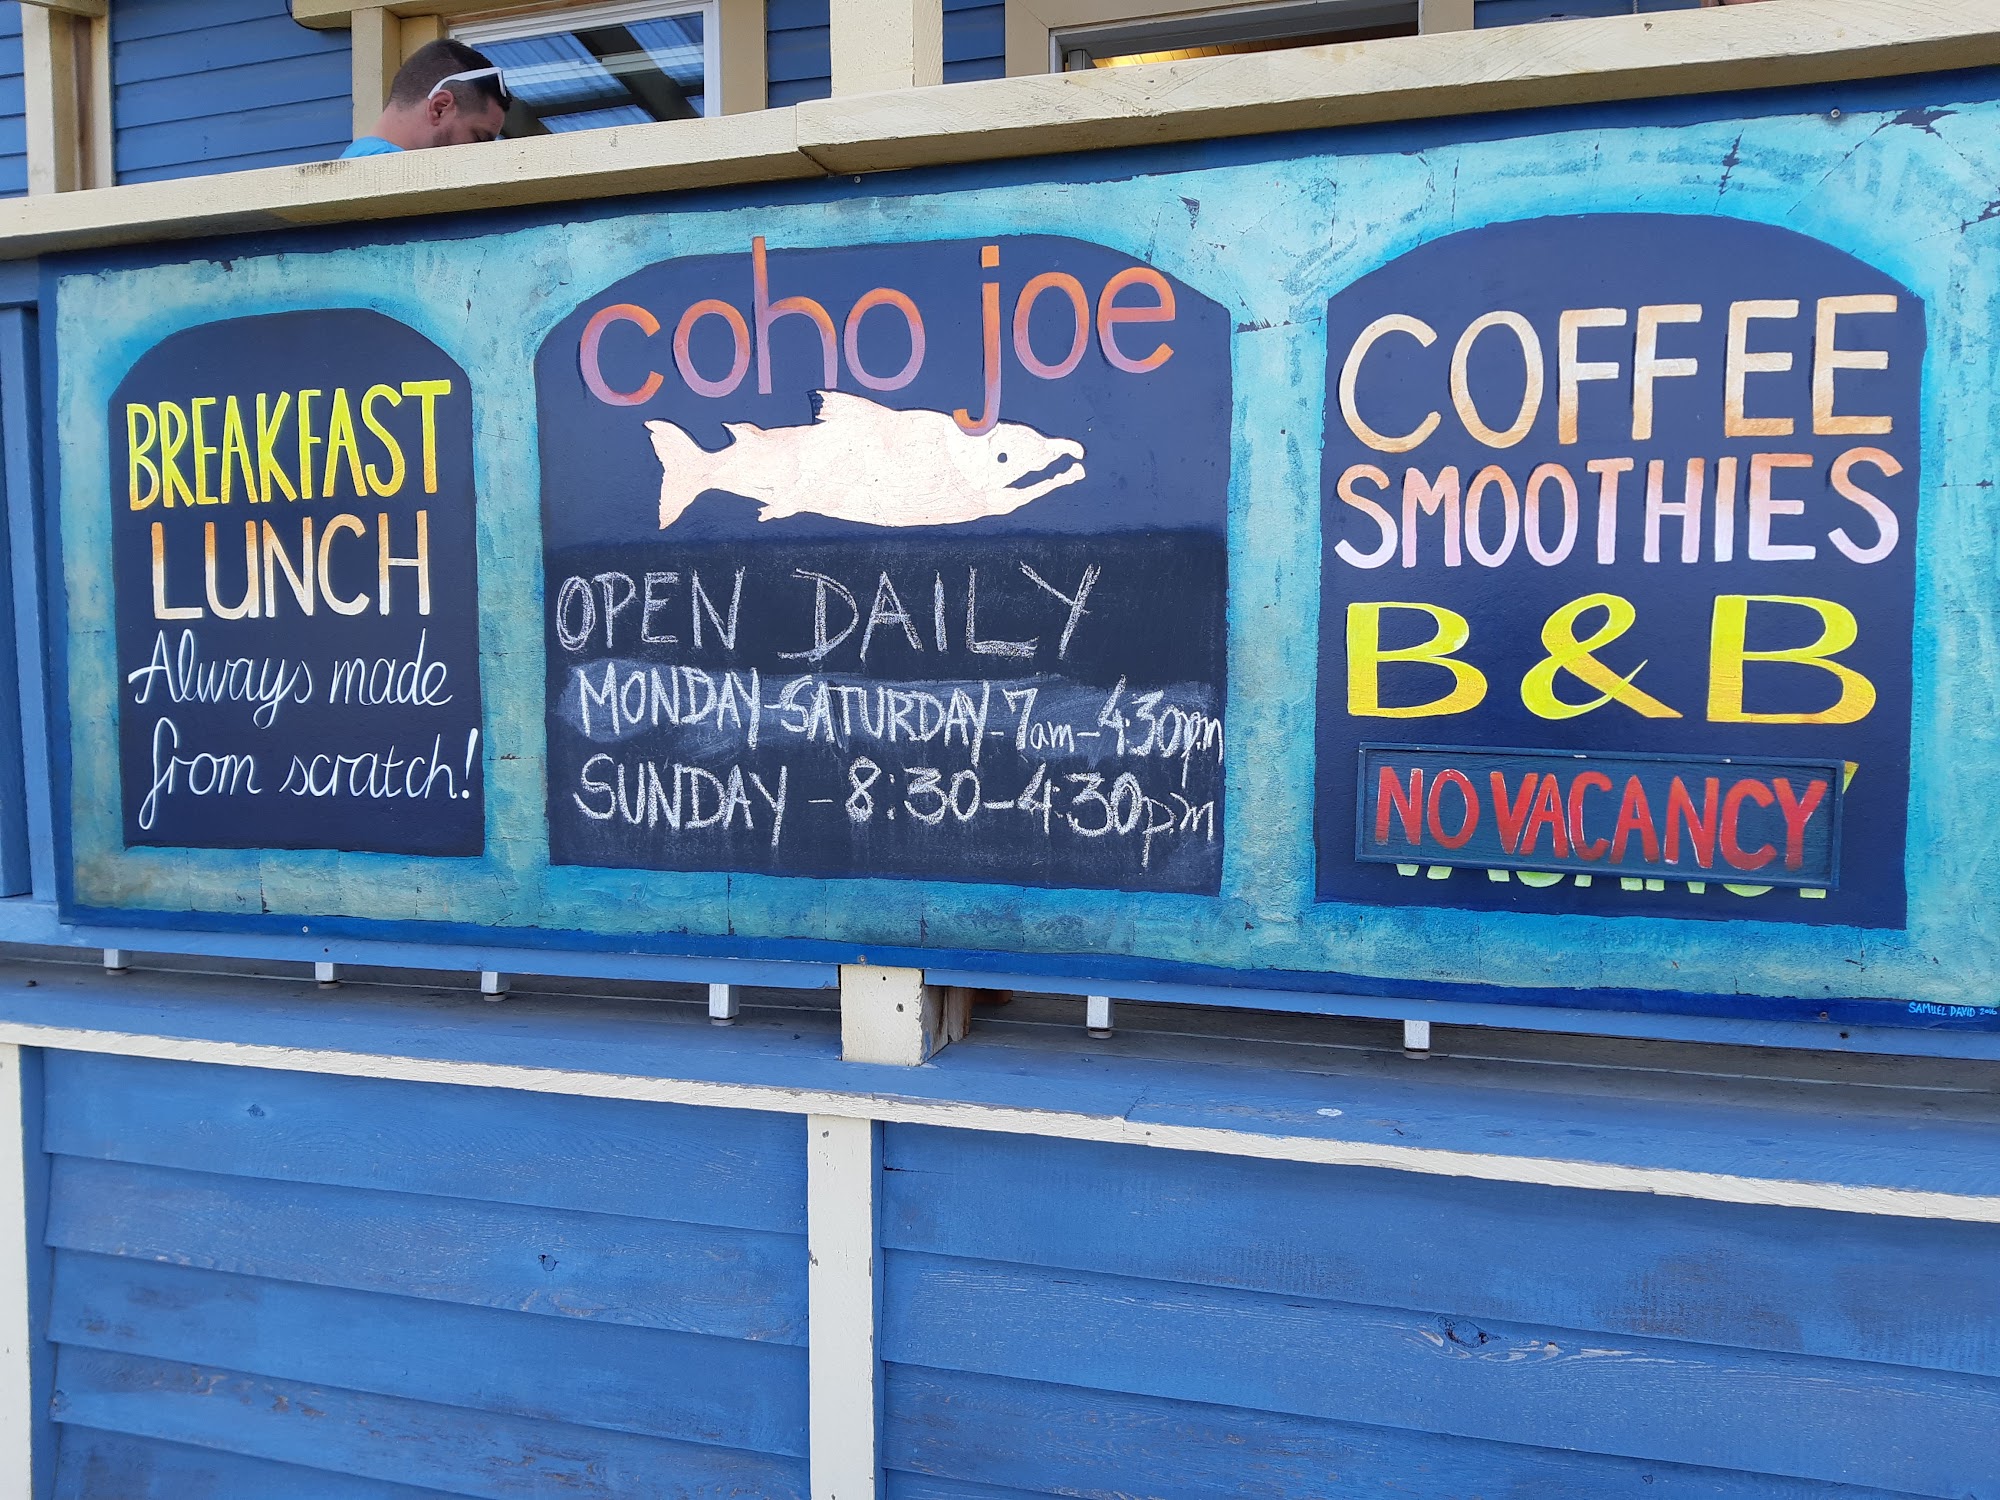 BREAKFAST
LUNCH
Always made
from scratch!
coho joe
OPEN DAILY
MONDAY-SATURDAY-7am-4:30p.m
SUNDAY - 8:30-4:30p.m
COFFEE
SMOOTHIES
B&B
NO VACANCY
VACANCY
SAMUEL DAVID 2016